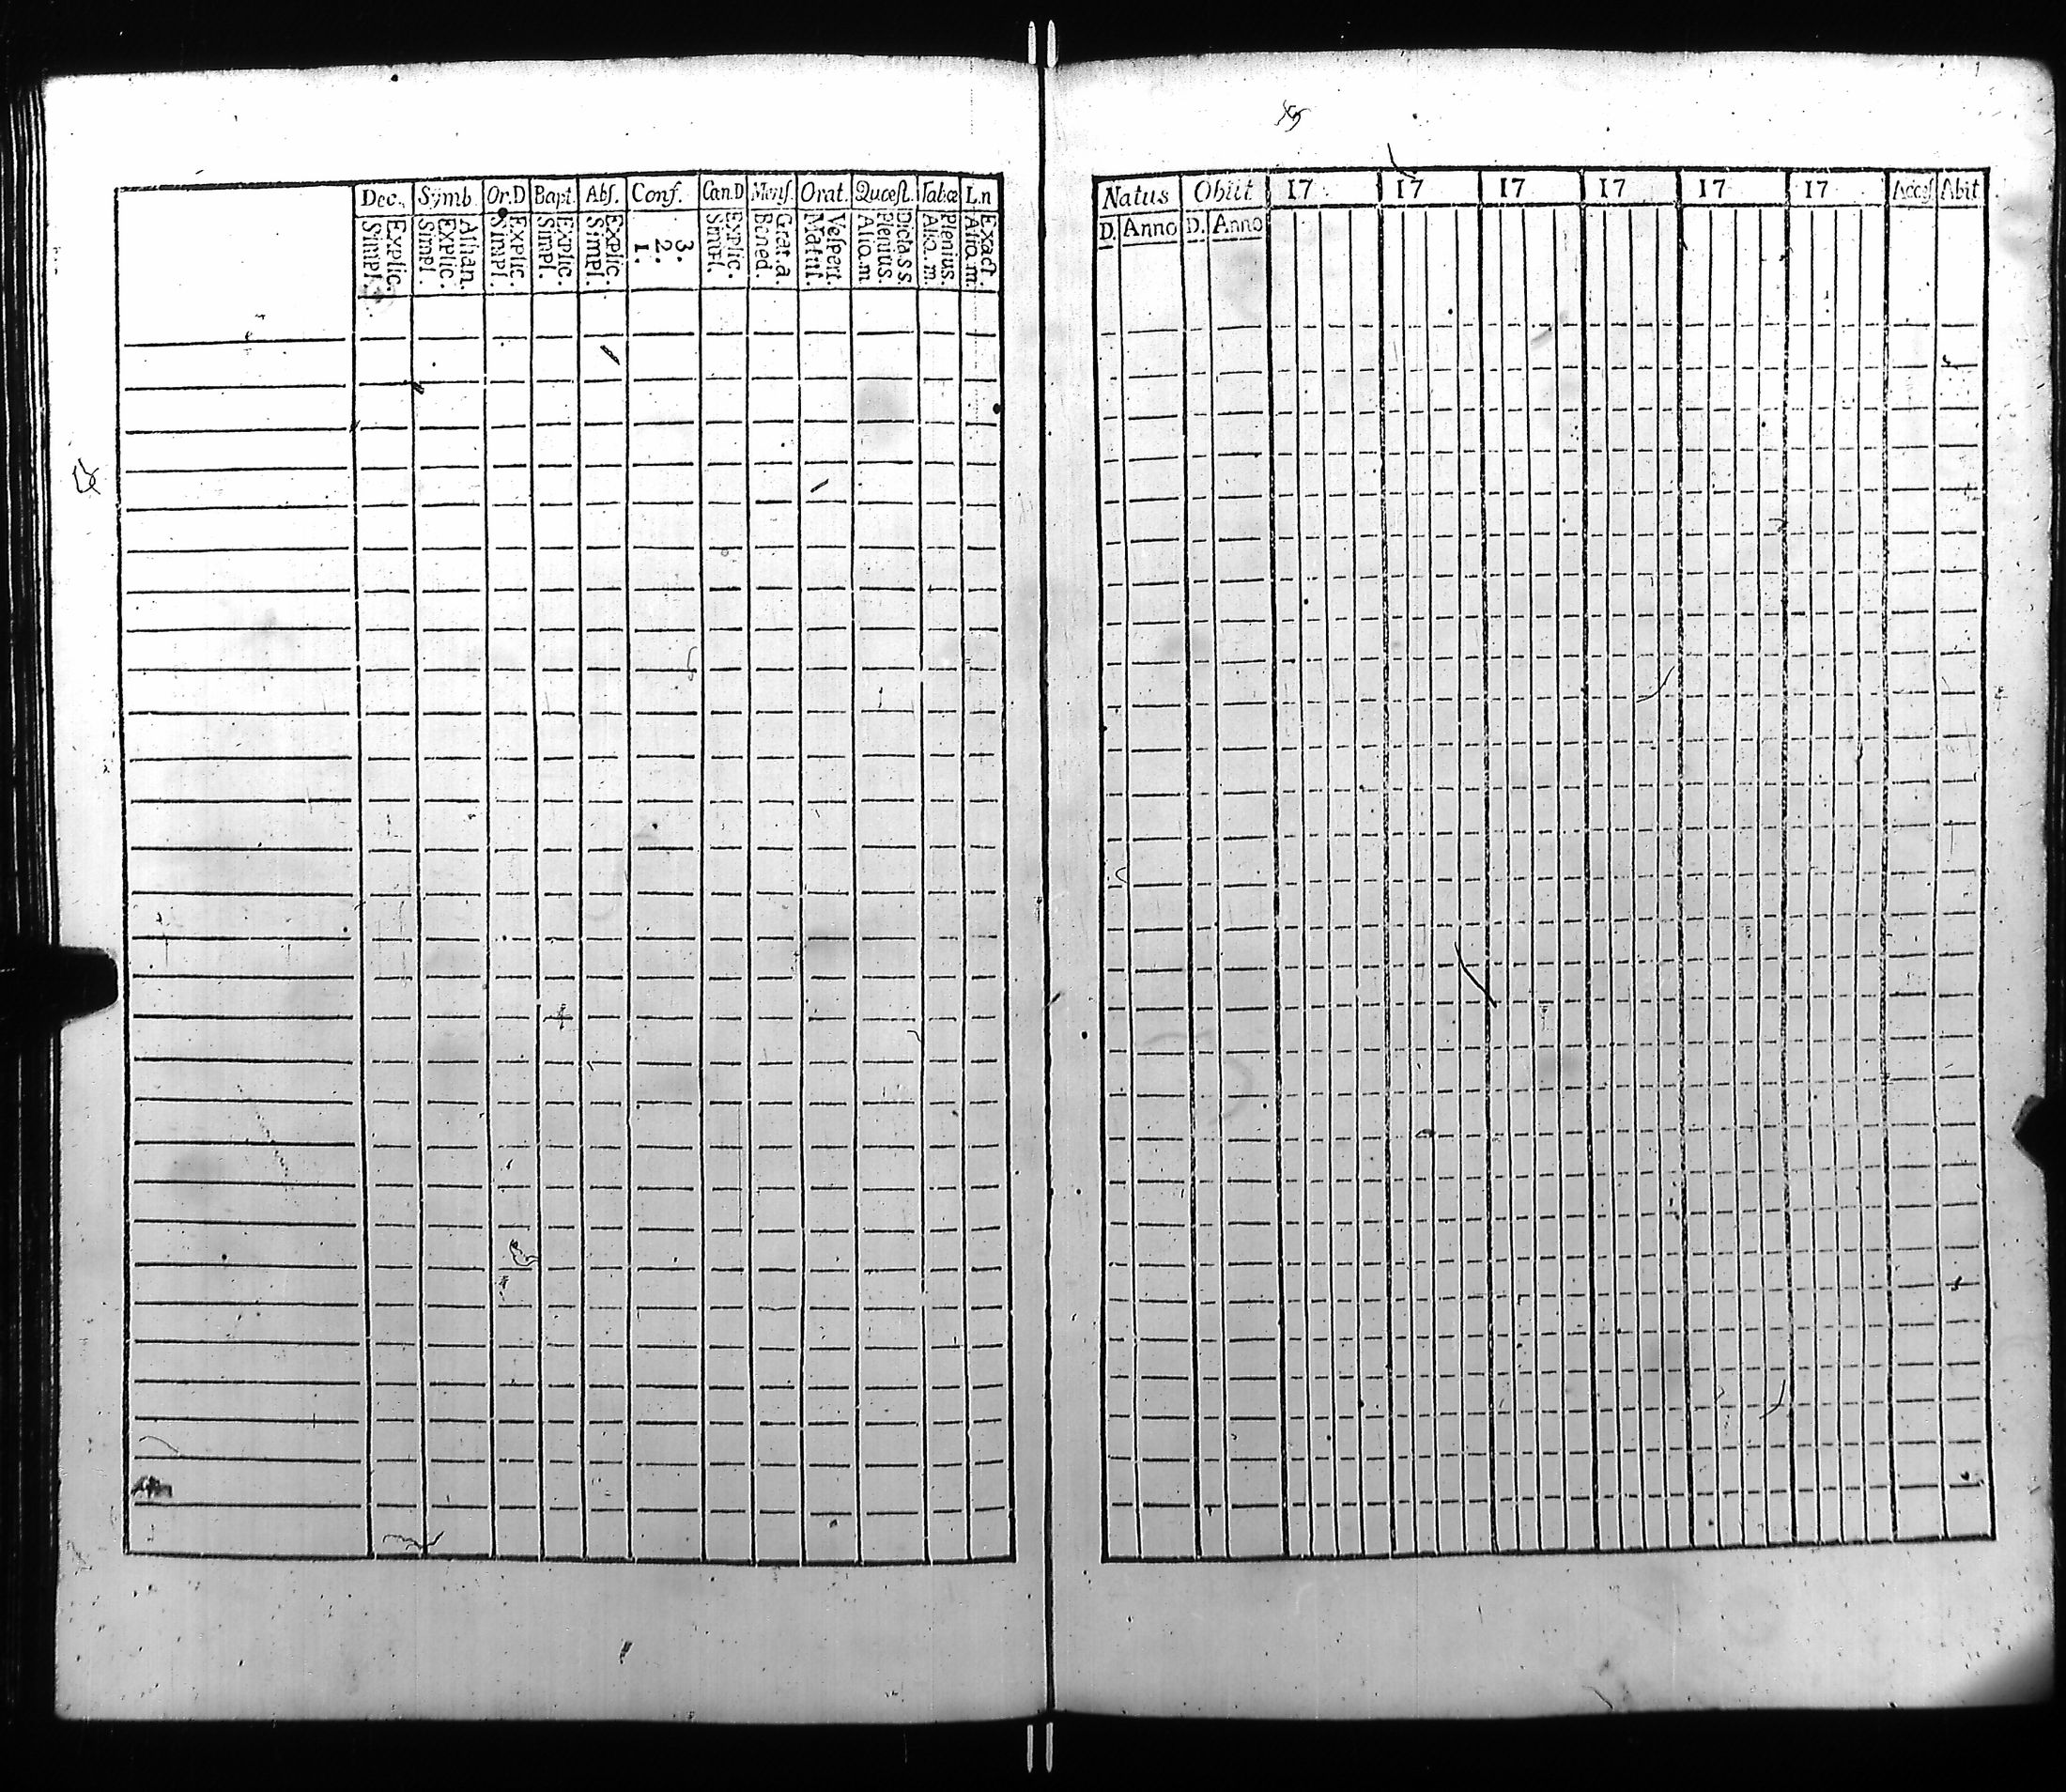 Dec. Symb. Or.D Bapt. Abſ. Conf. Can.D Menſ. Orat. Quæſt. Tabæ L.n
Simpl. Explic.
Simpl. Explic. Athan.
Simpl. Explic.
Simpl. Explic.
Simpl. Explic.
1. 2. 3.
Simpl. Explic.
Bened. Grat. a.
Matut. Veſpert.
Aliq. m Plenius. Dicta s s.
Aliq. m. Plenius.
Aliq. m. Exact.
Natus Obiit 17 17 17 17 17 17 Acceſ Abit
D. Anno D. Anno